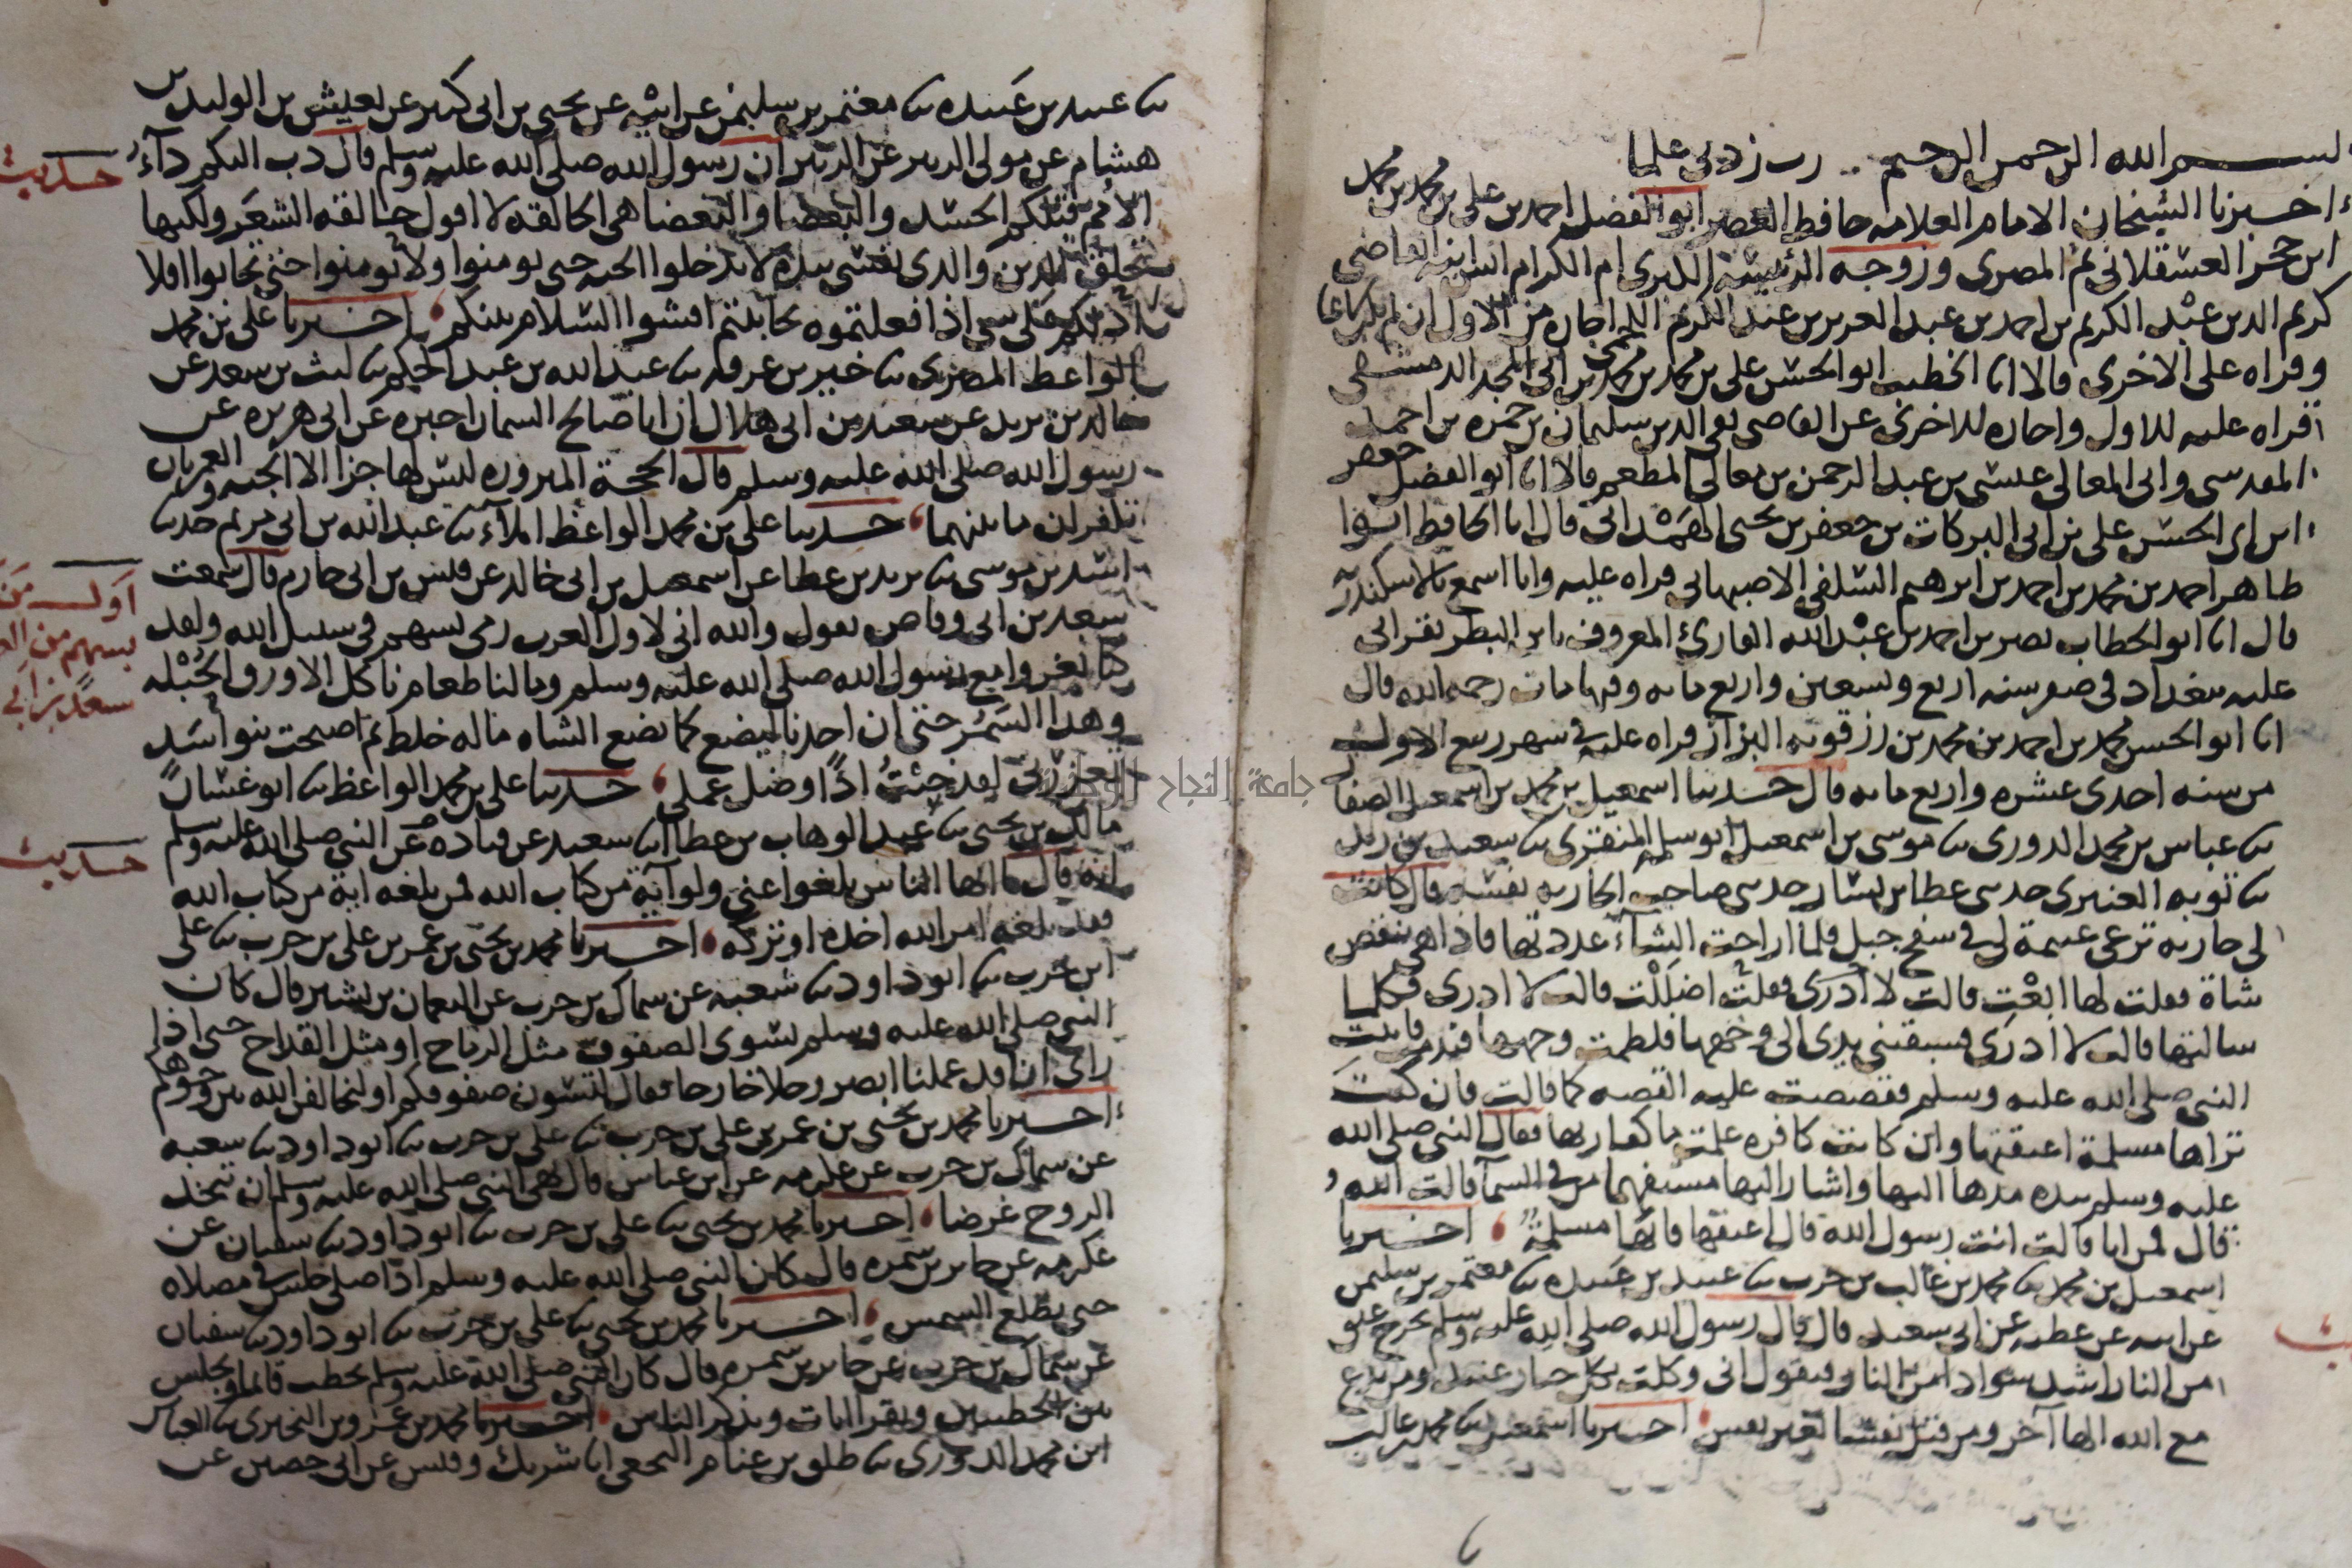 بسم الله الرحمن الرحيم .. رب زدني علما
اخبرنا الشيخان الامام العلامه حافظ العصر ابو الفضل احمد بن علي بن محمد بن محمد
ابن حجر العسقلاني ثم المصري وزوجه الرئيسة الكبرى ام الكرام انس ابنة القاضي
كريم الدين عبد الكريم بن احمد بن عبد العزيز بن عبد الكريم اللخمي اجازه من الاول ان لم يكن سماعا
وقراه على الاخرى قالا انا الخطيب ابو الحسن علي بن محمد بن محمد بن ابي المجد الدمشقي
قراه عليه للاول واجازه للاخرى عن القاضي تقي الدين سليمان بن حمزه بن احمد
المقدسي وابي المعالي عيسى بن عبد الرحمن بن معالي المطعم قالا انا ابو الفضل جعفر
ابن ابي الحسن علي بن ابي البركات بن جعفر بن يحيى الهمداني قال انا الحافظ ابو
طاهر احمد بن محمد بن احمد بن ابرهيم السلفي الاصبهاني قراه عليه وانا اسمع بالاسكندريه
قال انا ابو الخطاب نصر بن احمد بن عبد الله القارئ المعروف بابن البطر بقراتي
عليه ببغداد في صفر سنه اربع وتسعين واربع مايه وفيها مات رحمه الله قال
انا ابو الحسن محمد بن احمد بن محمد بن رزقويه البزاز قراه عليه في شهر ربيع الاول
من سنه احدى عشره واربع مايه قال حدثنا اسمعيل بن محمد بن اسمعيل الصفار
ثنا عباس بن محمد الدوري ثنا موسى بن اسمعيل ابو سلمه المنقري ثنا سعيد بن زيد
ثنا توبه العنبري حدثني عطا بن يسار حدثني صاحب الجاريه نفسه قال كانت
لي جاريه ترعى غنيمة لي في سفح جبل فلما اراحت الشاء عددتها فاذا هي تنقص
شاة فقلت لها ابعت قالت لا ادري فقلت اضللت قالت لا ادري فكلما
سالتها قالت لا ادري فسبقتني يدي الى وجهها فلطمت وجهها فندمت فاتيت
النبي صلى الله عليه وسلم فقصصت عليه القصه كما قالت فان كنت
تراها مسلمة اعتقتها وان كانت كافره علمت ما كفارتها فقال النبي صلى الله
عليه وسلم بيده مدها اليها واشار اليها مستفهما من في السما قالت الله
قال فمن انا قالت انت رسول الله قال اعتقها فانها مسلمة اخبرنا
اسمعيل بن محمد ثنا محمد بن غالب بن حرب ثنا عبيد بن عبيده ثنا معتمر بن سليمن
عن ابيه عن عطيه عن ابي سعيد قال قال رسول الله صلى الله عليه وسلم يخرج عنق
من النار اشد سوادا من النار فيقول اني وكلت بكل جبار عنيد ومن يدع
مع الله الها آخر ومن قتل نفسا لغير نفس اخبرنا اسمعيل ثنا محمد بن غالب
ثنا عبيد بن عبيده ثنا معتمر بن سليمن عن ابيه عن يحيى بن ابي كثير عن يعيش بن الوليد بن
هشام عن مولى الزبير عن الزبير ان رسول الله صلى الله عليه وسلم قال دب اليكم داء
الامم قبلكم الحسد والبغضا والبغضا هي الحالقه لا اقول حالقه الشعر ولكنها
تحلق الدين والذي نفسي بيده لا تدخلوا الجنه حتى تومنوا ولا تومنوا حتى تحابوا افلا
ادلكم على شي اذا فعلتموه تحاببتم افشوا السلام بينكم اخبرنا علي بن محمد
الواعظ المصري ثنا خير بن عرفه ثنا عبد الله بن عبد الحكم ثنا ليث بن سعد عن
خالد بن يزيد عن سعيد بن ابي هلال ان ابا صالح السمان اخبره عن ابي هريره عن
رسول الله صلى الله عليه وسلم قال الحجة المبروره ليس لها جزا الا الجنه والعمرتان
تكفران ما بينهما حدثنا علي بن محمد الواعظ املاء ثنا عبد الله بن ابي مريم حدثنا
اسد بن موسى ثنا يزيد بن عطا عن اسمعيل بن ابي خالد عن قيس بن ابي حازم قال سمعت
سعد بن ابي وقاص يقول والله اني لاول العرب رمى بسهم في سبيل الله ولقد
كنا نغزوا مع رسول الله صلى الله عليه وسلم وما لنا طعام ناكل الا ورق الحبله
وهذا السمر حتى ان احدنا ليضع كما تضع الشاه ماله خلط ثم اصبحت بنو اسد
تعزرني لقد خبت اذا وضل عملي حدثنا علي بن محمد الواعظ ثنا ابو غسان
مالك بن يحيى ثنا عبد الوهاب بن عطا انا سعيد عن قتاده عن النبي صلى الله عليه وسلم
انه قال يا ايها الناس بلغوا عني ولو آية من كتاب الله فمن بلغه اية من كتاب الله
فقد بلغه امر الله اخذه او تركه اخبرنا محمد بن يحيى بن عمر بن علي بن حرب ثنا علي
ابن حرب ثنا ابو داود ثنا شعبه عن سماك بن حرب عن النعمان بن بشير قال كان
النبي صلى الله عليه وسلم يسوي الصفوف مثل الرماح او مثل القداح حتى اذا
راى ان قد عملنا ابصر رجلا خارجا فقال لتسون صفوفكم او ليخالفن الله بين وجوهكم
اخبرنا محمد بن يحيى بن عمر بن علي بن حرب ثنا علي بن حرب ثنا ابو داود ثنا شعبه
عن سماك بن حرب عن عكرمه عن ابن عباس قال نهى النبي صلى الله عليه وسلم ان تتخذ
الروح غرضا اخبرنا محمد بن يحيى ثنا علي بن حرب ثنا ابو داود ثنا سفيان عن
عكرمه عن جابر بن سمره قال كان النبي صلى الله عليه وسلم اذا صلى جلس في مصلاه
حتى تطلع الشمس اخبرنا محمد بن يحيى ثنا علي بن حرب ثنا ابو داود ثنا سفيان
عن سماك بن حرب عن جابر بن سمره قال كان النبي صلى الله عليه وسلم يخطب قائما ويجلس
بين الخطبتين ويقرا ايات ويذكر الناس اخبرنا محمد بن عمرو بن البختري ثنا العباس
ابن محمد الدوري ثنا طلق بن غنام النخعي انا شريك وقيس عن ابي حصين عن
حديث
اول من
بسهم من
سعد بن ابي
حديث
جامعة النجاح الوطنية